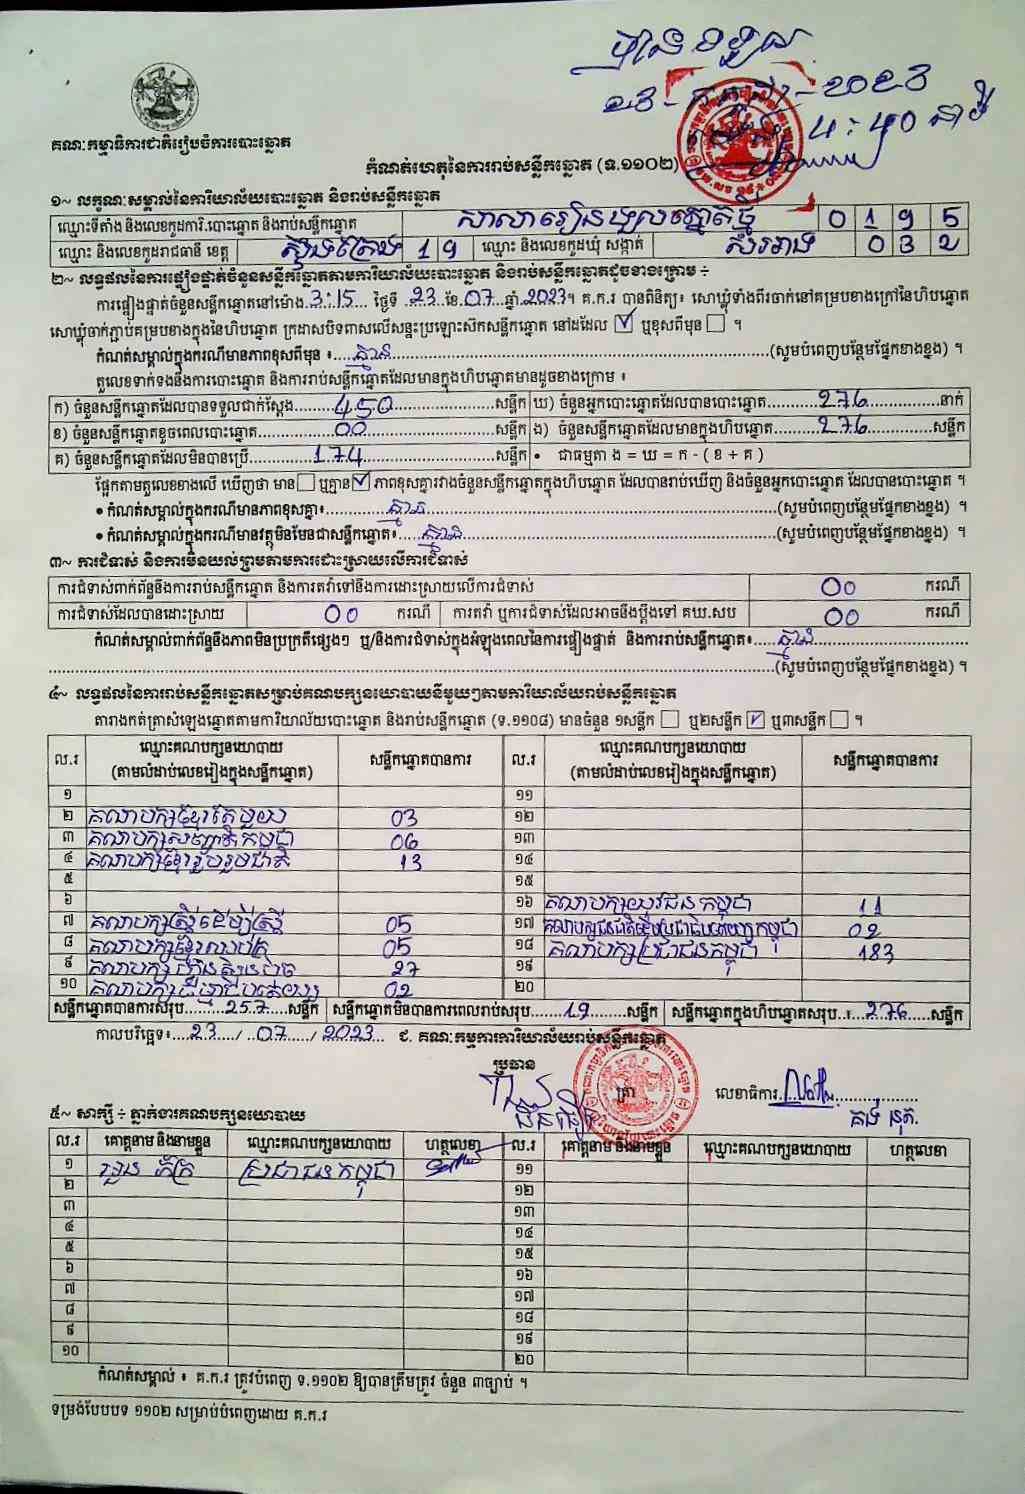 បានទទួល
23-កក្កដា-2023
4:40 នាទី
គណៈកម្មាធិការជាតិរៀបចំការបោះឆ្នោត
កំណត់ហេតុនៃការរាប់សន្លឹកឆ្នោត (ទ.១១០២)
១~ លក្ខណៈសម្គាល់នៃការិយាល័យបោះឆ្នោត និងរាប់សន្លឹកឆ្នោត
ឈ្មោះទីតាំង និងលេខកូដការិ.បោះឆ្នោត និងរាប់សន្លឹកឆ្នោត សាលារៀន 0 1 9 5
ឈ្មោះ និងលេខកូដរាជធានី ខេត្ត ស្ទឹងត្រែង 1 9 ឈ្មោះ និងលេខកូដឃុំ សង្កាត់ 0 3 2
២~ លទ្ធផលនៃការផ្ទៀងផ្ទាត់ចំនួនសន្លឹកឆ្នោតតាមការិយាល័យបោះឆ្នោត និងរាប់សន្លឹកឆ្នោតដូចខាងក្រោម ÷
ការផ្ទៀងផ្ទាត់ចំនួនសន្លឹកឆ្នោតនៅម៉ោង 3:15 ថ្ងៃទី 23 ខែ 07 ឆ្នាំ 2023។ គ.ក.រ បានពិនិត្យ៖ សោឃ្លុំទាំងពីរចាក់នៅគម្របខាងក្រៅនៃហិបឆ្នោត
សោឃ្លុំចាក់ភ្ជាប់គម្របខាងក្នុងនៃហិបឆ្នោត ក្រដាសបិទពាសលើសន្ទះប្រឡោះស៊កសន្លឹកឆ្នោត នៅដដែល ☑ ឬខុសពីមុន ☐ ។
កំណត់សម្គាល់ក្នុងករណីមានភាពខុសពីមុន ៖ គ្មាន (សូមបំពេញបន្ថែមផ្នែកខាងខ្នង) ។
តួលេខទាក់ទងនឹងការបោះឆ្នោត និងការរាប់សន្លឹកឆ្នោតដែលមានក្នុងហិបឆ្នោតមានដូចខាងក្រោម ៖
ក) ចំនួនសន្លឹកឆ្នោតដែលបានទទួលជាក់ស្ដែង 450 សន្លឹក ឃ) ចំនួនអ្នកបោះឆ្នោតដែលបានបោះឆ្នោត 276 នាក់
ខ) ចំនួនសន្លឹកឆ្នោតខូចពេលបោះឆ្នោត 00 សន្លឹក ង) ចំនួនសន្លឹកឆ្នោតដែលមានក្នុងហិបឆ្នោត 276 សន្លឹក
គ) ចំនួនសន្លឹកឆ្នោតដែលមិនបានប្រើ 174 សន្លឹក • ជាធម្មតា ង = ឃ = ក - ( ខ + គ )
ផ្អែកតាមតួលេខខាងលើ ឃើញថា មាន ☐ ឬគ្មាន ☑ ភាពខុសគ្នារវាងចំនួនសន្លឹកឆ្នោតក្នុងហិបឆ្នោត ដែលបានរាប់ឃើញ និងចំនួនអ្នកបោះឆ្នោត ដែលបានបោះឆ្នោត ។
• កំណត់សម្គាល់ក្នុងករណីមានភាពខុសគ្នា៖ គ្មាន (សូមបំពេញបន្ថែមផ្នែកខាងខ្នង) ។
• កំណត់សម្គាល់ក្នុងករណីមានវត្ថុមិនមែនជាសន្លឹកឆ្នោត៖ គ្មាន (សូមបំពេញបន្ថែមផ្នែកខាងខ្នង) ។
៣~ ការជំទាស់ និងការមិនយល់ព្រមតាមការដោះស្រាយលើការជំទាស់
ការជំទាស់ពាក់ព័ន្ធនឹងការរាប់សន្លឹកឆ្នោត និងការតវ៉ាទៅនឹងការដោះស្រាយលើការជំទាស់ 00 ករណី
ការជំទាស់ដែលបានដោះស្រាយ 00 ករណី ការតវ៉ា ឬការជំទាស់ដែលអាចនឹងប្ដឹងទៅ គឃ.សប 00 ករណី
កំណត់សម្គាល់ពាក់ព័ន្ធនឹងភាពមិនប្រក្រតីផ្សេងៗ ឬ/និងការជំទាស់ក្នុងអំឡុងពេលនៃការផ្ទៀងផ្ទាត់ និងការរាប់សន្លឹកឆ្នោត៖ គ្មាន
(សូមបំពេញបន្ថែមផ្នែកខាងខ្នង) ។
៤~ លទ្ធផលនៃការរាប់សន្លឹកឆ្នោតសម្រាប់គណបក្សនយោបាយនីមួយៗតាមការិយាល័យរាប់សន្លឹកឆ្នោត
តារាងកត់ត្រាសំឡេងឆ្នោតតាមការិយាល័យបោះឆ្នោត និងរាប់សន្លឹកឆ្នោត (ទ.១១០៨) មានចំនួន ១សន្លឹក ☐ ឬ២សន្លឹក ☑ ឬ៣សន្លឹក ☐ ។
ល.រ ឈ្មោះគណបក្សនយោបាយ (តាមលំដាប់លេខរៀងក្នុងសន្លឹកឆ្នោត) សន្លឹកឆ្នោតបានការ ល.រ ឈ្មោះគណបក្សនយោបាយ (តាមលំដាប់លេខរៀងក្នុងសន្លឹកឆ្នោត) សន្លឹកឆ្នោតបានការ
១ ១១
២ គណបក្សខ្មែរតែមួយ 03 ១២
៣ គណបក្សសញ្ជាតិកម្ពុជា 06 ១៣
៤ គណបក្សខ្មែររួបរួមជាតិ 13 ១៤
៥ ១៥
៦ ១៦ គណបក្សយុវជនកម្ពុជា 11
៧ គណបក្សស្ត្រីដើម្បីស្ត្រី 05 ១៧ គណបក្សជនជាតិដើមប្រជាធិបតេយ្យកម្ពុជា 02
៨ គណបក្សខ្មែរឈប់ក្រ 05 ១៨ គណបក្សប្រជាជនកម្ពុជា 183
៩ គណបក្សហ្វ៊ុនស៊ិនប៉ិច 27 ១៩
១០ គណបក្សធម្មាធិបតេយ្យ 02 ២០
សន្លឹកឆ្នោតបានការសរុប 257 សន្លឹក សន្លឹកឆ្នោតមិនបានការពេលរាប់សរុប 19 សន្លឹក សន្លឹកឆ្នោតក្នុងហិបឆ្នោតសរុប ៖ 276 សន្លឹក
កាលបរិច្ឆេទ៖ 23 / 07 / 2023 ជ. គណៈកម្មការការិយាល័យរាប់សន្លឹកឆ្នោត
ប្រធាន ត្រា លេខាធិការ
៥~ សាក្សី ÷ ភ្នាក់ងារគណបក្សនយោបាយ
ល.រ គោត្តនាម និងនាមខ្លួន ឈ្មោះគណបក្សនយោបាយ ហត្ថលេខា ល.រ គោត្តនាម និងនាមខ្លួន ឈ្មោះគណបក្សនយោបាយ ហត្ថលេខា
១ ប្រជាជនកម្ពុជា ១១
២ ១២
៣ ១៣
៤ ១៤
៥ ១៥
៦ ១៦
៧ ១៧
៨ ១៨
៩ ១៩
១០ ២០
កំណត់សម្គាល់ ៖ គ.ក.រ ត្រូវបំពេញ ទ.១១០២ ឱ្យបានត្រឹមត្រូវ ចំនួន ៣ច្បាប់ ។
ទម្រង់បែបបទ ១១០២ សម្រាប់បំពេញដោយ គ.ក.រ